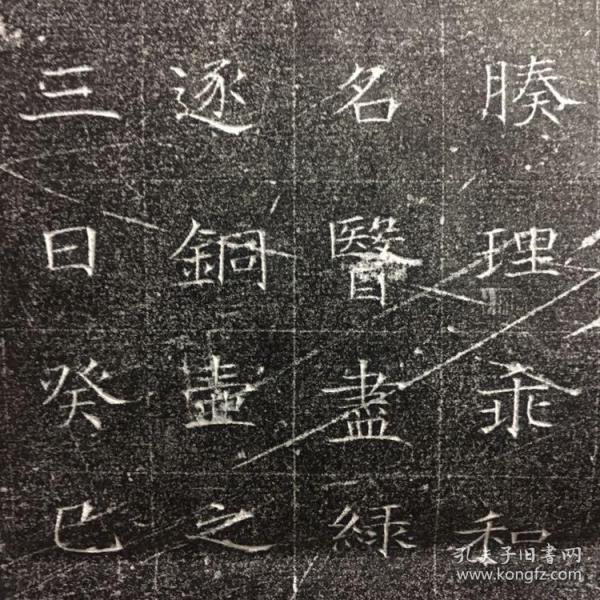 腠理乖和
名醫盡綠
逐銅壺之
三日癸巳
孔夫子旧書网
www.kongfz.com